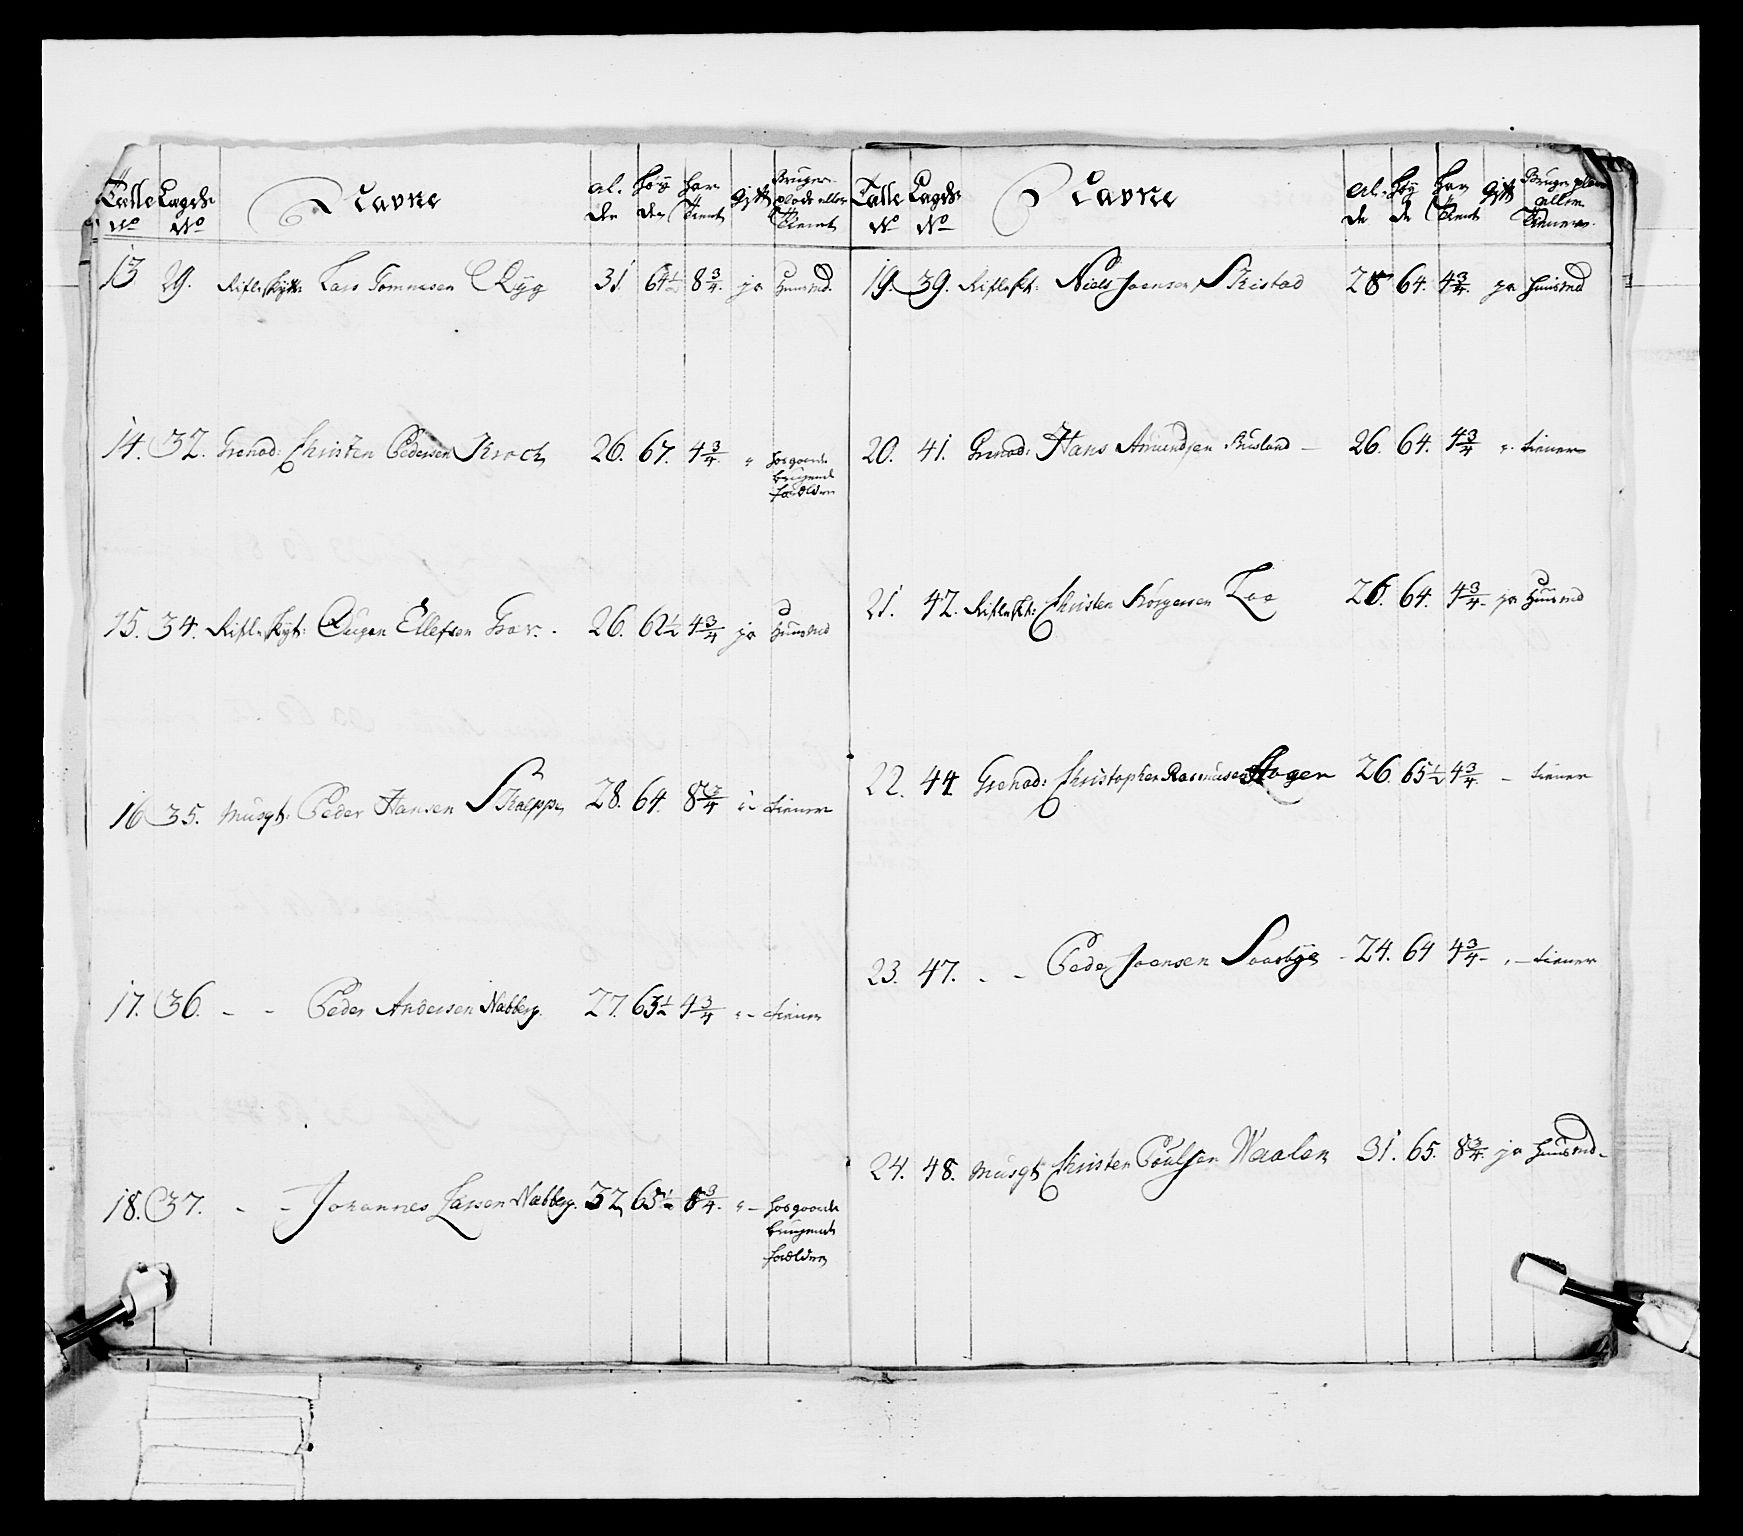 Talle No Lægds No Navne Al-der Høy-den Har tient Gift Bruger plads eller tienst
13 29. Rifle skytt: Lars Tommesen Ryg 31 64½ 8¾. ja Huusmd.
14. 32. Grenad: Christen Pedersen Kroch 26. 67. 4¾. " hos gaard
brugende
forældre
15. 34. Rifle skyt: Ellefsen Gar. 26. 62½ 4¾ ja Huusmd
16 35. Musqt: Peder Hansen Skieppe 28. 64. 8¾ " tiener
17. 36. - - Peder Andersen Nabberg. 27. 63½ 4¾ " - tiener
18. 37. - - Johannes Larsen Nabberg. 32 65½ 8¾. " - hos gaard
brugende
forældre
Talle No Lægds No Navne Al-de Høy-de Har tient Gift Bruger plads eller tiener
19. 39. Rifle skt: Niels Joensen Skistad 28 64. 4¾. ja Huusmd
20. 41. Grenad: Hans Amundsen Buslund - 26. 64. 4¾ ". tiener
21. 42. Rifle skt: Christen Jørgensen Loe 26. 64. 4¾. ja Huusmd
22. 44 Grenad: Christopher Rasmusen Hagen 26. 65½ 4¾. - tiener
23. 47. - - Peder Joensen - 24. 64 4¾ - " - tiener
24. 48. Musqt: Christen Poulsen Waalen 31. 65. 8¾. ja Huusmd.